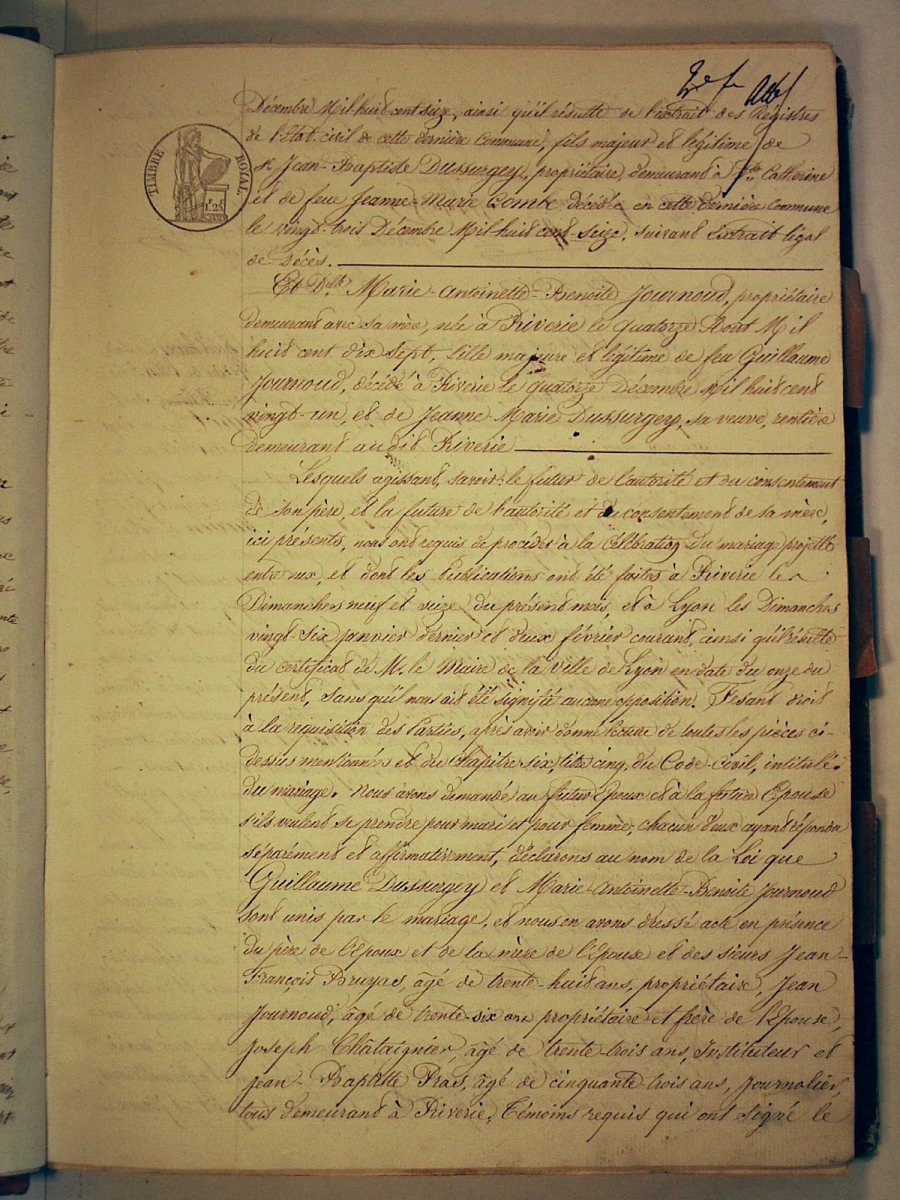 2e f
TIMBRE ROYAL
1f 25
Décembre Mil huit cent seize, ainsi qu'il résulte de l'extrait des Régistres
de l'État civil de cette dernière Commune, fils majeur et légitime de
Jean-Baptiste Dussurgey, propriétaire, demeurant à Ste Catherine
et de feue Jeanne-Marie Combe décédée en cette dernière Commune
le vingt-trois Décembre Mil huit cent-seize, suivant Extrait légal
de Décès.
Et Dlle Marie-Antoinette-Benoite Journoud, propriétaire
demeurant avec sa mère, née à Riverie le quatorze Août Mil
huit cent dix sept, fille majeure et légitime de feu Guillaume
Journoud, décédé à Riverie le quatorze Décembre Mil huit cent
vingt-un, et de Jeanne-Marie Dussurgey, sa veuve, rentière
demeurant audit Riverie
Lesquels agissant, savoir: le futur de l'autorité et du consentement
de son père, et la future de l'autorité et du consentement de sa mère,
ici présents, nous ont requis de procéder à la Célébration du mariage projetté
entre eux, et dont les Publications ont été faites à Riverie les
Dimanches neuf et seize du présent mois, et à Lyon les Dimanches
vingt-six janvier dernier et deux février courant, ainsi qu'il résulte
du certificat de M. le Maire de la ville de Lyon en date du onze du
présent, sans qu'il nous ait été signifié aucune opposition. Fesant droit
à la requisition des Parties, après avoir donné lecture de toutes les pièces ci-
dessus mentionnées et du Chapitre six, titre cinq, du Code-Civil, intitulé:
du mariage. Nous avons demandé au futur Epoux et à la future Epouse
s'ils veulent se prendre pour mari et pour femme; chacun d'eux ayant répondu
séparément et affirmativement, déclarons au nom de la Loi que
Guillaume Dussurgey et Marie-Antoinette-Benoite Journoud
sont unis par le mariage, et nous en avons dressé acte en présence
du père de l'Epoux et de la mère de l'Epouse et des sieurs Jean-
François Bruyas, âgé de trente-huit ans, propriétaire, Jean
Journoud, âgé de trente-six ans propriétaire et frère de l'Epouse,
Joseph Chataignier, âgé de trente-trois ans, Instituteur et
Jean-Baptiste Pras, âgé de cinquante-trois ans, Journalier,
tous demeurant à Riverie, Témoins requis qui ont signé le